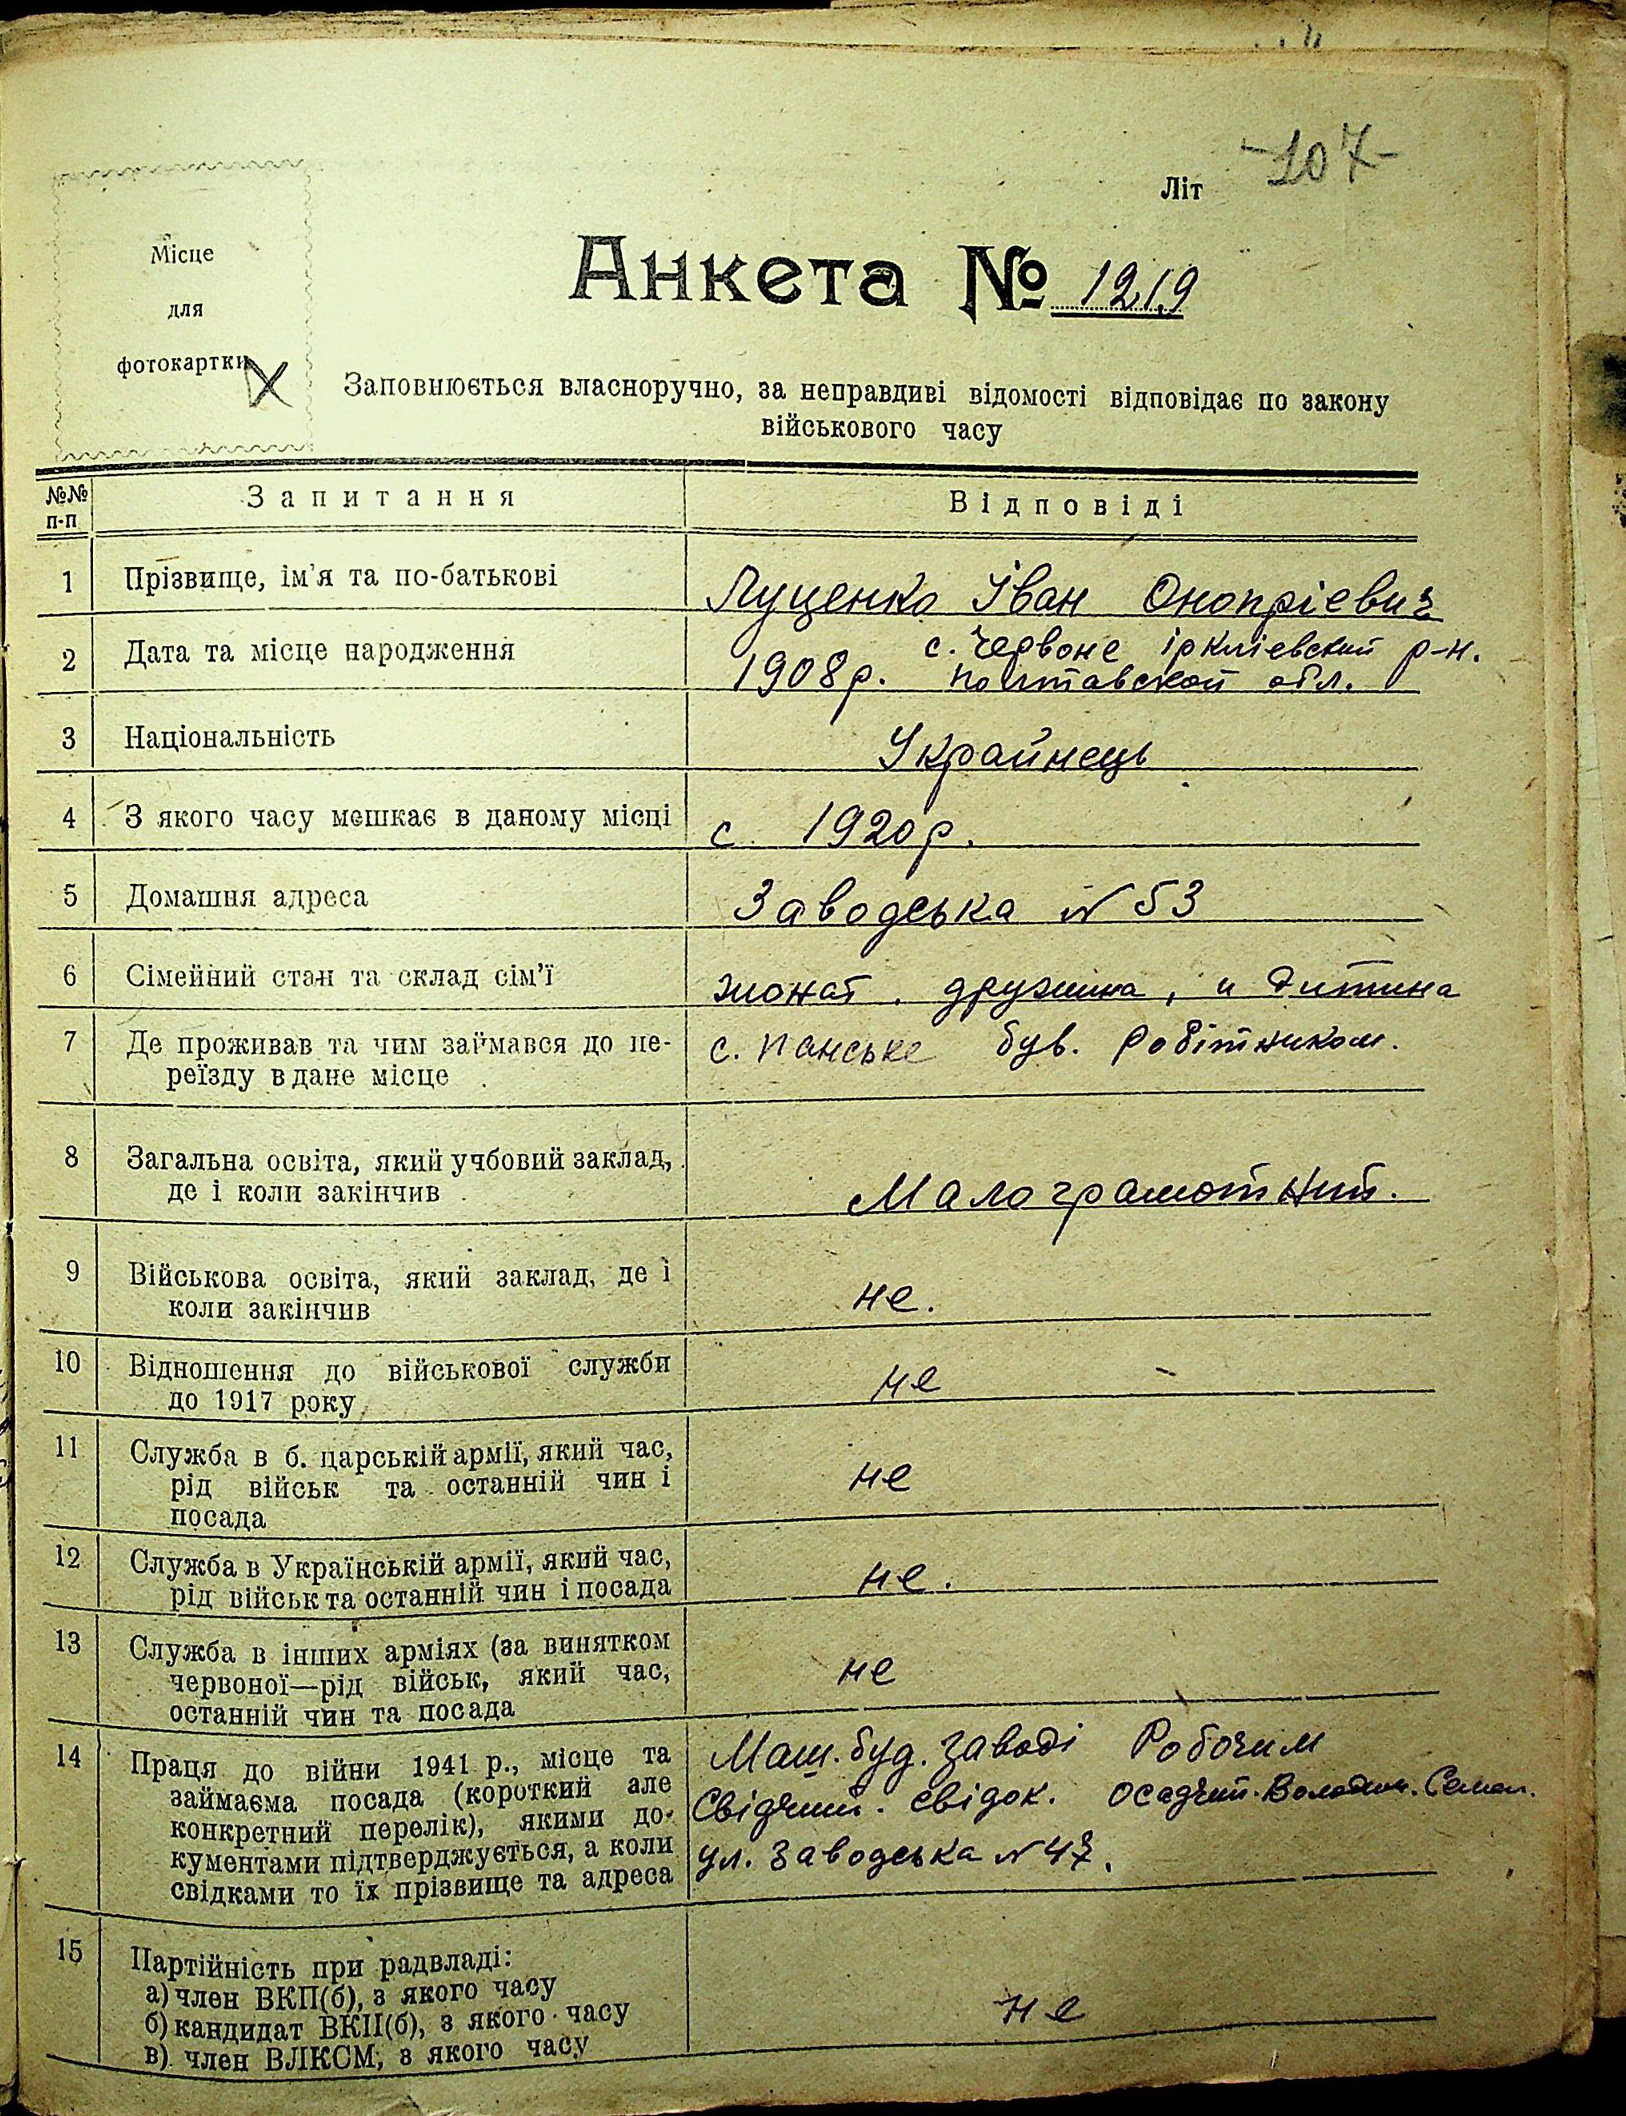 -107-
Літ
Місце
для
фотокартки
Анкета № 1219
Заповнюється власноручно, за неправдиві відомості відповідає по закону
військового часу
№№ п-п Запитання Відповіді
1 Прізвище, ім'я та по-батькові Луценко Іван Онопрієвич
2 Дата та місце народження 1908р. с. Червоне іркліевский р-н.
полтавской обл.
3 Національність Украйнець
4 З якого часу мешкає в даному місці с 1920р.
5 Домашня адреса Заводська №53
6 Сімейний стан та склад сім'ї жонат, дружина, и дитина
7 Де проживав та чим займався до пе- с. Панське був. робітником.
реїзду в дане місце
8 Загальна освіта, який учбовий заклад,
де і коли закінчив Малограмотний.
9 Військова освіта, який заклад, де і
коли закінчив не.
10 Відношення до військової служби
до 1917 року не
11 Служба в б. царській армії, який час,
рід військ та останній чин і не
посада
12 Служба в Українській армії, який час,
рід військ та останній чин і посада не.
13 Служба в інших арміях (за винятком
червоної—рід військ, який час, не
останній чин та посада
14 Праця до війни 1941 р., місце та Маш. буд. заводі Робочим
займаєма посада (короткий але Свідчий. свідок. Осадчий. Володим. Семен.
конкретний перелік), якими до-
кументами підтверджується, а коли ул. Заводська №47.
свідками то їх прізвище та адреса
15 Партійність при радвладі:
а) член ВКП(б), з якого часу
б) кандидат ВКП(б), з якого часу не
в) член ВЛКСМ, з якого часу